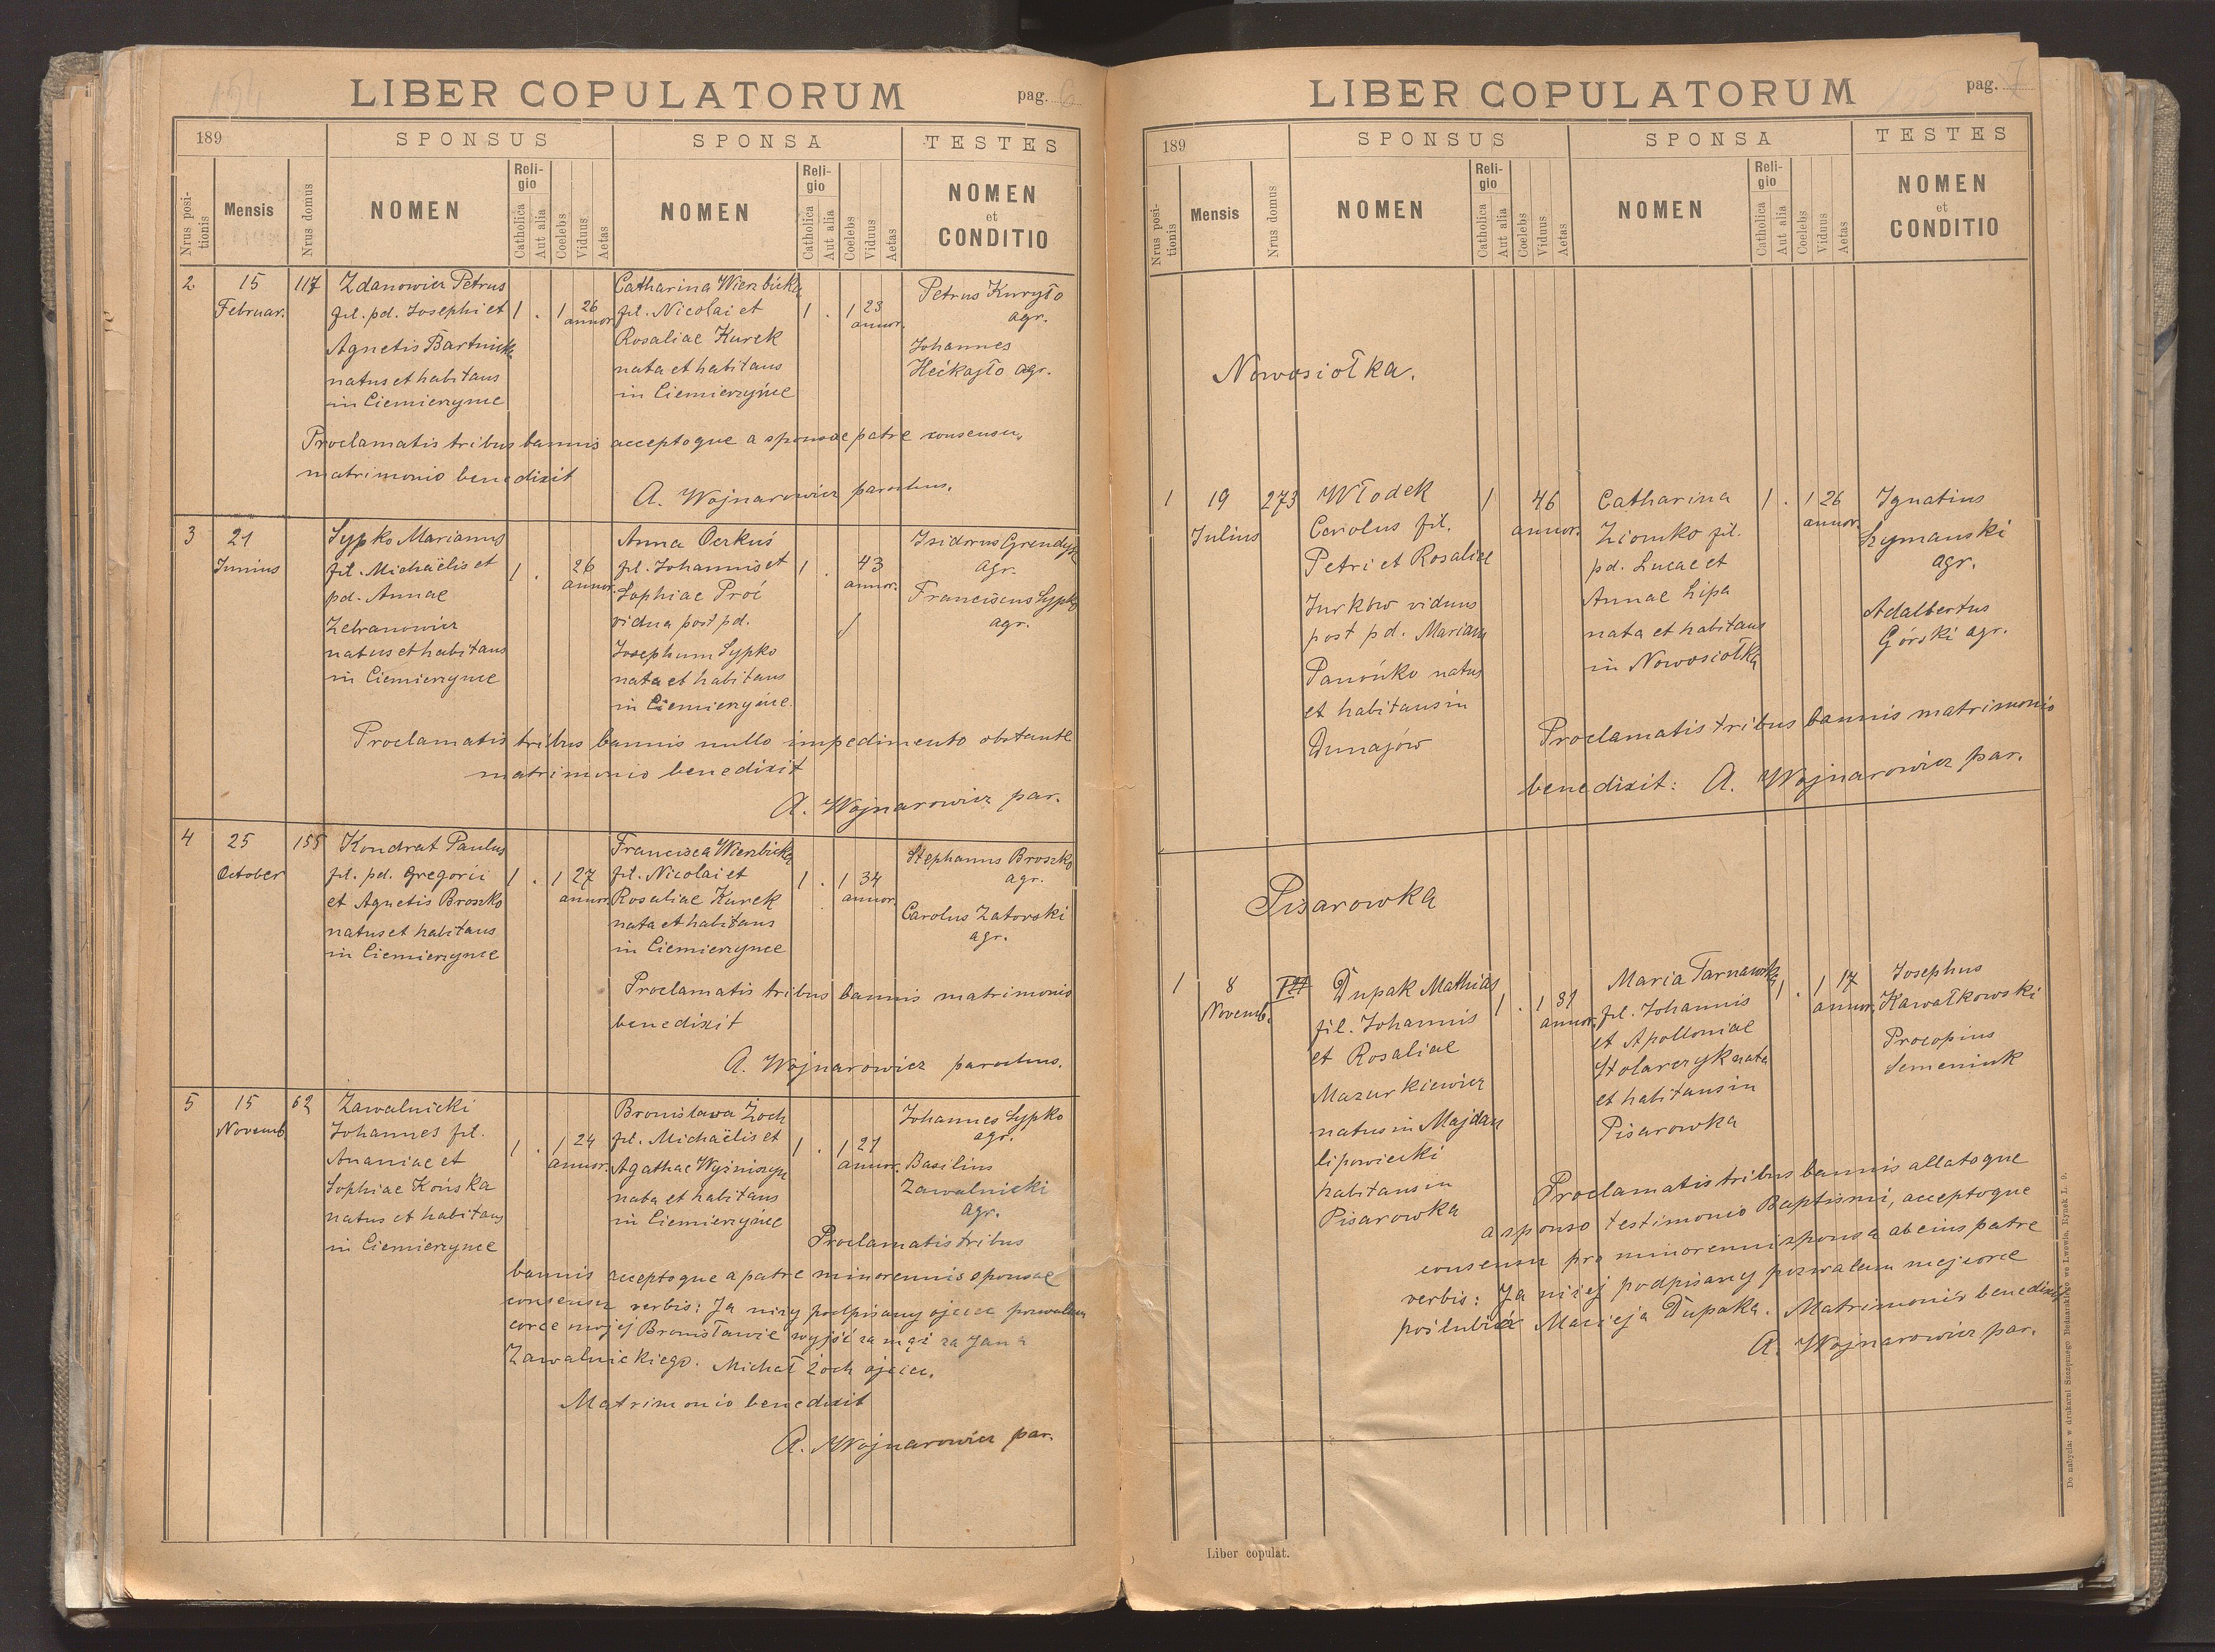 154
LIBER COPULATORUM
pag. 6
189
SPONSUS
SPONSA
TESTES
Nrus positionis
Mensis
Nrus domus
NOMEN
Religio
Catholica
Aut alia
Coelebs
Viduus
Aetas
NOMEN
Religio
Catholica
Aut alia
Coelebs
Viduus
Aetas
NOMEN
et
CONDITIO
2
15
Februar.
117
Zdanowicz Petrus
fil. pd. Josephi et
Agnetis Bartnicka
natus et habitans
in Ciemierzynce
1 . 1 26
annor.
Catharina Wierzbicka
fil. Nicolai et
Rosaliae Kurek
nata et habitans
in Ciemierzyńce
1 . 1 23
annor.
Petrus Kuryło
agr.
Johannes
Hećkajło agr.
Proclamatis tribus bannis acceptoque a sponsae patre consensu,
matrimonio benedixit
A. Wojnarowicz parochus.
3
21
Junius
Sypko Marianus
fil. Michaëlis et
pd. Annae
Zebranowicz
natus et habitans
in Ciemierzynce
1 . 26
annor.
Anna Oerkuś
fil. Johannis et
Sophiae Proć
vidua post pd.
Josephum Sypko
nata et habitans
in Ciemierzyńce.
1 . 43
annor.
Isidorus Grendyk
agr.
Franciscus Sypko
agr.
Proclamatis tribus bannis nullo impedimento obstante
matrimonio benedixit
A. Wojnarowicz par.
4
25
October
155
Kondrat Paulus
fil. pd. Gregorii
et Agnetis Broszko
natus et habitans
in Ciemierzynce
1 . 1 27
annor.
Francisca Wierzbicka
fil. Nicolai et
Rosaliae Kurek
nata et habitans
in Ciemierzynce
1 . 1 34
annor.
Stephanus Broszko
agr.
Carolus Zatorski
agr.
Proclamatis tribus bannis matrimonio
benedixit
A. Wojnarowicz parochus.
5
15
Novemb.
62
Zawalnicki
Johannes fil.
Ananiae et
Sophiae Końska
natus et habitans
in Ciemierzynce
1 . 1 24
annor.
Bronislawa Żoch
fil. Michaëlis et
Agathae Wyżniszyn
nata et habitans
in Ciemierzyńce
1 . 1 21
annor.
Johannes Sypko
agr.
Basilius
Zawalnicki
agr.
Proclamatis tribus
bannis acceptoque a patre minorennis sponsae
consensu verbis: Ja nizy podpisany ojciec pozwalam
corce mojej Bronisławie wyjść za mąż za Jana
Zawalnickiego. Michał Żoch ojciec.
Matrimonio benedixit
A. Wojnarowicz par.
LIBER COPULATORUM
pag. 7
189
SPONSUS
SPONSA
TESTES
Nrus positionis
Mensis
Nrus domus
NOMEN
Religio
Catholica
Aut alia
Coelebs
Viduus
Aetas
NOMEN
Religio
Catholica
Aut alia
Coelebs
Viduus
Aetas
NOMEN
et
CONDITIO
Nowosiołka.
1
19
Julius
273
Włodek
Carolus fil.
Petri et Rosaliae
Jurków viduus
post pd. Mariam
Panońko natus
et habitans in
Dunajów
1 46
annor.
Catharina
Ziomko fil.
pd. Lucae et
Annae Lipa
nata et habitans
in Nowosiołka
1 . 1 26
annor.
Ignatius
Szymanski
agr.
Adalbertus
Górski agr.
Proclamatis tribus bannis matrimonio
benedixit: A. Wojnarowicz par.
Pisarowka
1
8
Novemb.
Dupak Mathias
fil. Johannis
et Rosaliae
Mazurkiewicz
natus in Majdan
lipowiecki
habitans in
Pisarowka
1 . 1 31
annor.
Maria Tarnawska
fil. Johannis
et Apolloniae
Stolarczyk nata
et habitans in
Pisarowka
1 . 1 17
annor.
Josephus
Kawałkowski
Procopius
Semeniuk
Proclamatis tribus bannis allatoque
a sponso testimonio Baptismi, acceptoque
consensu pro minorenni sponsa ab eius patre
verbis: Ja niżej podpisany pozwalam mej corce
poślubić Macieja Dupaka. Matrimonio benedixit
A. Wojnarowicz par.
Liber copulat.
Do nabycia: w drukarni Szczęsnego Bednarskiego we Lwowie, Rynek L. 9.